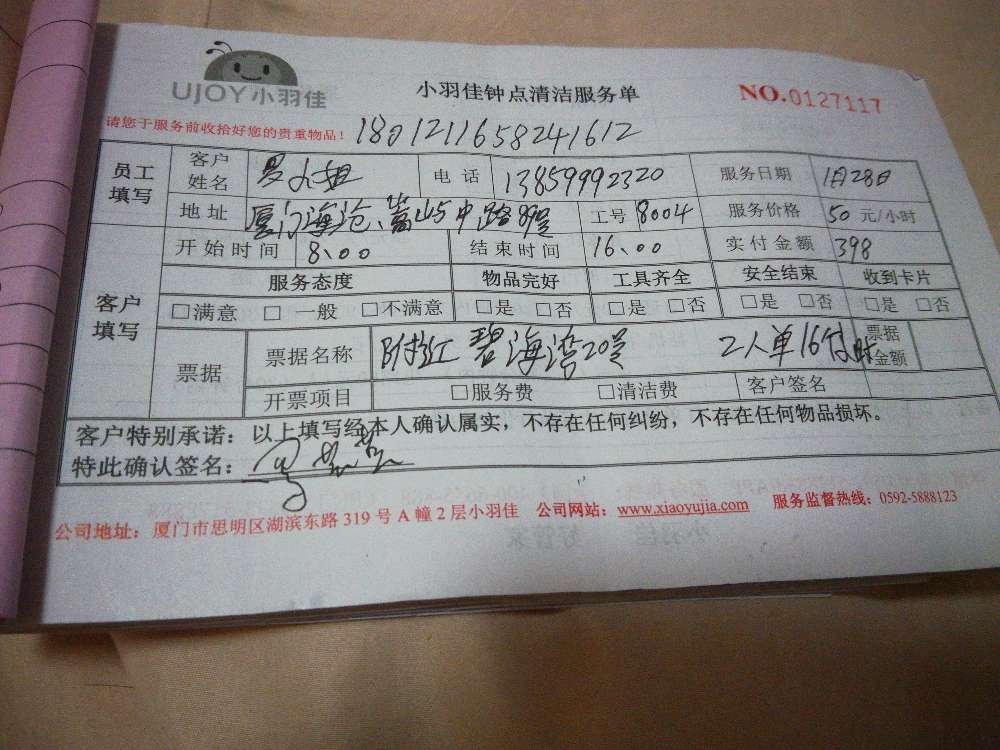 UJOY小羽佳
小羽佳钟点清洁服务单
NO.0127117
请您于服务前收拾好您的贵重物品!
1801211658241612
员工填写 客户姓名 小姐 电话 13859992320 服务日期 1月28日
地址 厦门海沧、嵩屿中路89号 工号 8004 服务价格 50 元/小时
客户填写 开始时间 8:00 结束时间 16:00 实付金额 398
服务态度 物品完好 工具齐全 安全结束 收到卡片
□满意 □一般 □不满意 □是 □否 □是 □否 □是 □否 □是 □否
票据 票据名称 附近 碧海湾20号 2人单16 票据金额
开票项目 □服务费 □清洁费 客户签名
客户特别承诺:以上填写经本人确认属实,不存在任何纠纷,不存在任何物品损坏。
特此确认签名:
公司地址:厦门市思明区湖滨东路 319 号 A 幢 2 层小羽佳 公司网站:www.xiaoyujia.com 服务监督热线:0592-5888123